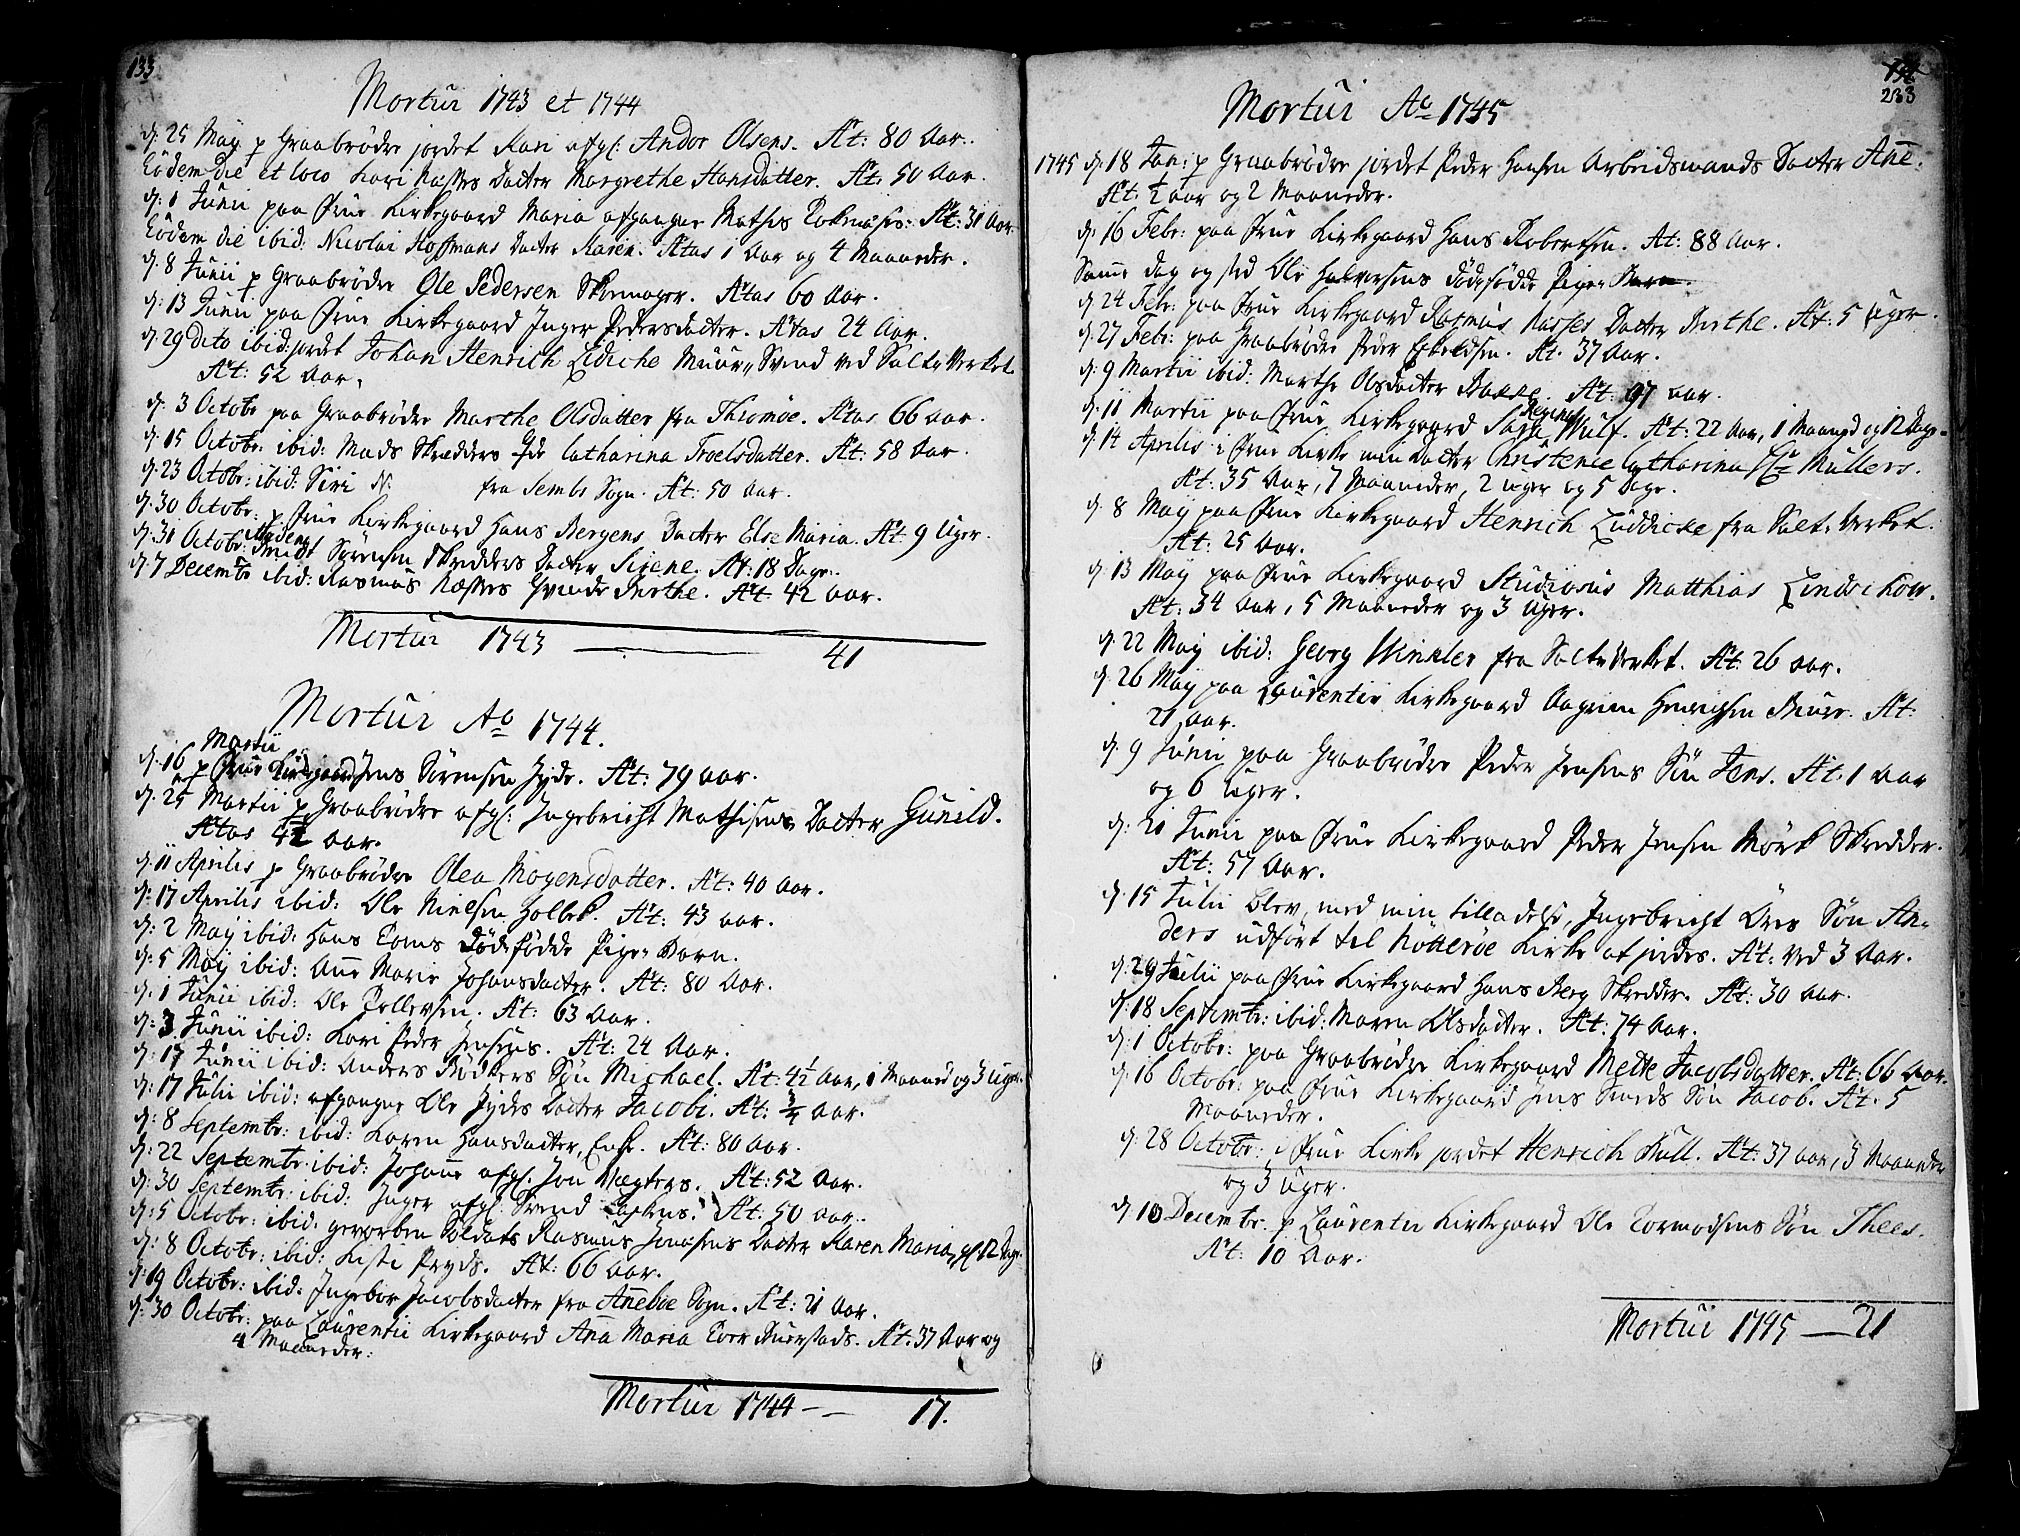 133
Mortui 1743 et 1744
d. 25 Maij p Graabrødre jordet Kari afgl: Andor Olsens. Æt: 80 Aar.
Eodem die et loco Lars Datter Margrethe Hansdatter. Æt: 50 Aar.
d. 1 Junii paa Frue Kirkegaard Maria afgangne Mathis Æt: 31 Aar
Eodem die ibid: Nicolai Hoffmans Datter Karen. Ætas 1 Aar og 4 Maaneder.
d. 8 Junii p Graabrødre Ole Pedersen Skomager. Ætas 60 Aar.
d: 13 Junii paa Frue Kirkegaard Inger Pedersdatter. Ætas 24 Aar.
d. 29 Dito ibid: jordet Johan Henrich Lidiche Muur-Svend ved Salt-Verket
Æt: 52 Aar.
d. 3 Octobr paa Graabrødre Marthe Olsdatter fra Thiomøe. Ætas 66 Aar.
d. 15 Octobr: ibid: Mads Skrædders Catharina Troelsdatter. Æt: 58 Aar.
d. 23 Octobr: ibid: Siri N. fra Sembs Sogn. Æt: 50 Aar.
d. 30 Octobr: p Frue Kirkegaard Hans Bergens Datter Else Maria. Æt 9 Uger.
d: 31 Octobr: Sørensen Skredders Datter Sirene. Æt: 18 Dage.
d. 7 Decembr ibid: Rasmus Næsses Qvinde Berthe. Æt: 42 Aar.
Mortui 1743 — 41
Mortui Ao 1744.
Martii
d: 16 p Frue Kirkegaard Jens Sørensen Hyde. Æt: 79 aar.
d: 25 Martii p Graabrødre afgl: Ingebricht Mathisens Datter Gunild.
Ætas 4½ aar.
d. 11 Aprilis p Graabrødre Olea Mogensdatter. Æt: 40 Aar.
d: 17 Aprilis ibid: Ole Nielsen Holbek. Æt: 43 aar.
d: 2 Maij ibid: Hans Toms Dødfødde Pige-Barn.
d: 5 Maij ibid: Ane Marie Johansdatter. Æt: 80 Aar.
d: 1 Junii ibid: Ole Tollevsen. Æt: 63 Aar.
d: 3 Junii ibid: Kari Peder Jensens. Æt: 24 Aar.
d: 17 Junii ibid: Anders Bødkers Søn Michael. Æt: 4½ Aar, 1 Maaned og 3 Uger.
d: 17 Julii ibid: afgangne Ole Jydes Datter Jacobi. Æt: ¾ Aar.
d: 8 Septembr: ibid: Karen Hansdatter, Enke. Æt: 80 Aar.
d: 22 Septembr: ibid: Johanne afgl: Jon Vægters. Æt: 52 Aar.
d: 30 Septembr: ibid: Inger afgl: Svend Æt: 50 Aar.
d: 5 Octobr: ibid: gevorben Soldats Rasmus Jonasens Datter Karen Maria, gl: 12 Dage.
d: 8 Octobr: ibid: Kisti Pryds. Æt: 66 Aar.
d: 19 Octobr: ibid: Ingebor Jacobsdatter fra Aneboe Sogn. Æt: 21 Aar.
d: 30 Octobr: paa Laurentii Kirkegaard Ana Maria Tver Æt: 37 Aar og
4 Maaneder:
Mortui 1744 — 17.
233
Mortui Ao 1745
1745 d. 18 Jan: p Graabrødre jordet Peder Hansen Arbeidsmands Datter Ane.
Æt: ½ aar og 2 Maaneder.
d. 16 Febr: paa Frue Kirkegaard Hans Robertsen. Æt: 88 Aar.
Samme Dag og sted Ole Halvorsens dødfødde Pige-Barn.
d. 24 Febr: paa Frue Kirkegaard Rasmus Næsses Datter Berthe. Æt: 5 Uger.
d. 27 Febr: paa Graabrødre Peder Eskeldsen. Æt. 37 Aar.
d: 9 Martii ibid: Marthe Olsdatter Bakke. Æt: 97 aar.
d: 11 Martii paa Frue Kirkegaard Sara Regina Wulf. Æt: 22 Aar, 1 Maaned og 12 Dage.
d. 14 Aprilis i Frue Kirke min Datter Christence Catharina Müllers.
Æt: 35 Aar, 7 Maaneder, 2 uger og 5 Dage.
d. 8 Maij paa Frue Kirkegaard Henrich Lüddicke fra Salt-Verket.
Æt: 25 Aar.
d: 13 Maij paa Frue Kirkegaard Studiosus Matthias Lindschow.
Æt: 34 Aar, 5 Maaneder og 3 Uger.
d. 22 Maij ibid: Georg Winkler fra Saltværket. Æt: 26 aar.
d. 26 Maij paa Laurentii Kirkegaard Henrichsen Æt:
21 Aar.
d. 9 Junii paa Graabrødre Peder Jensens Søn Jens. Æt: 1 Aar
og 6 Uger.
d: 21 Junii paa Frue Kirkegaard Peder Jensen Mörk Skredder.
Æt: 57 Aar.
d: 15 Julii blev, med min tilladelse, Ingebricht Ores Søn An-
ders udført til Nötterøe Kirke at jordes. Æt: ved 3 Aar.
d. 29 Julii paa Frue Kirkegaard Hans Berg Skredder. Æt: 30 Aar.
d. 18 Septembr: ibid: Maren Olsdatter. Æt: 74 Aar.
d: 1 Octobr: paa Graabrødre Kirkegaard Mette Jacobsdatter. Æt: 66 Aar.
d. 16 Octobr: paa Frue Kirkegaard Jens Smeds Søn Jacob. Æt: 5
Maaneder.
d: 28 Octobr: i Frue Kirke jordet Henrich Kull. Æt: 37 aar, 3 Maaneder
og 3 Uger.
d. 10 Decembr. p Laurentii Kirkegaard Ole Tormodsens Søn Thees.
Æt: 10 Aar.
Mortui 1745 — 21